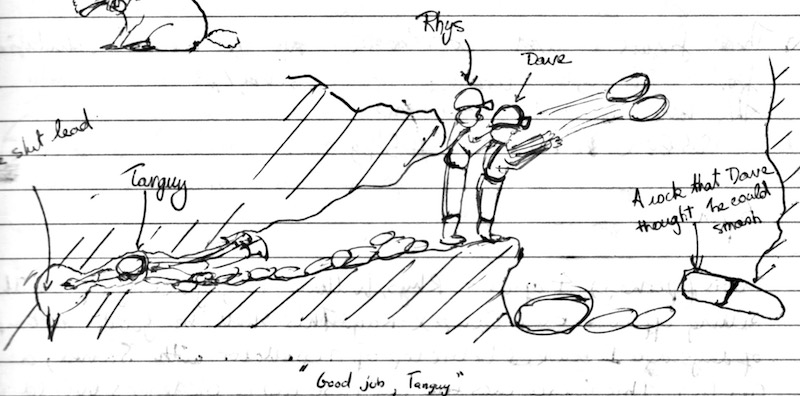 Rhys
Dave
shit lead
Tanguy
A rock that Dave
thought he could
smash
"Good job, Tanguy"